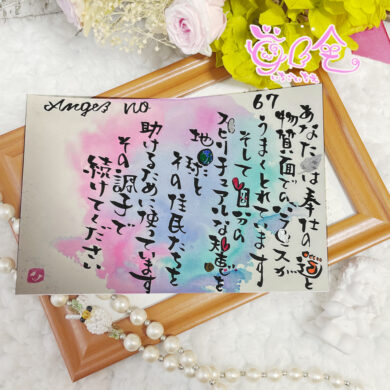 Angel NO
67
あなたは奉仕の道と
物質面でのバランスが
うまくとれています
そして自分の
スピリチュアルな知恵を
地球と
その住民たちを
助けるために使っています
その調子で
続けてください